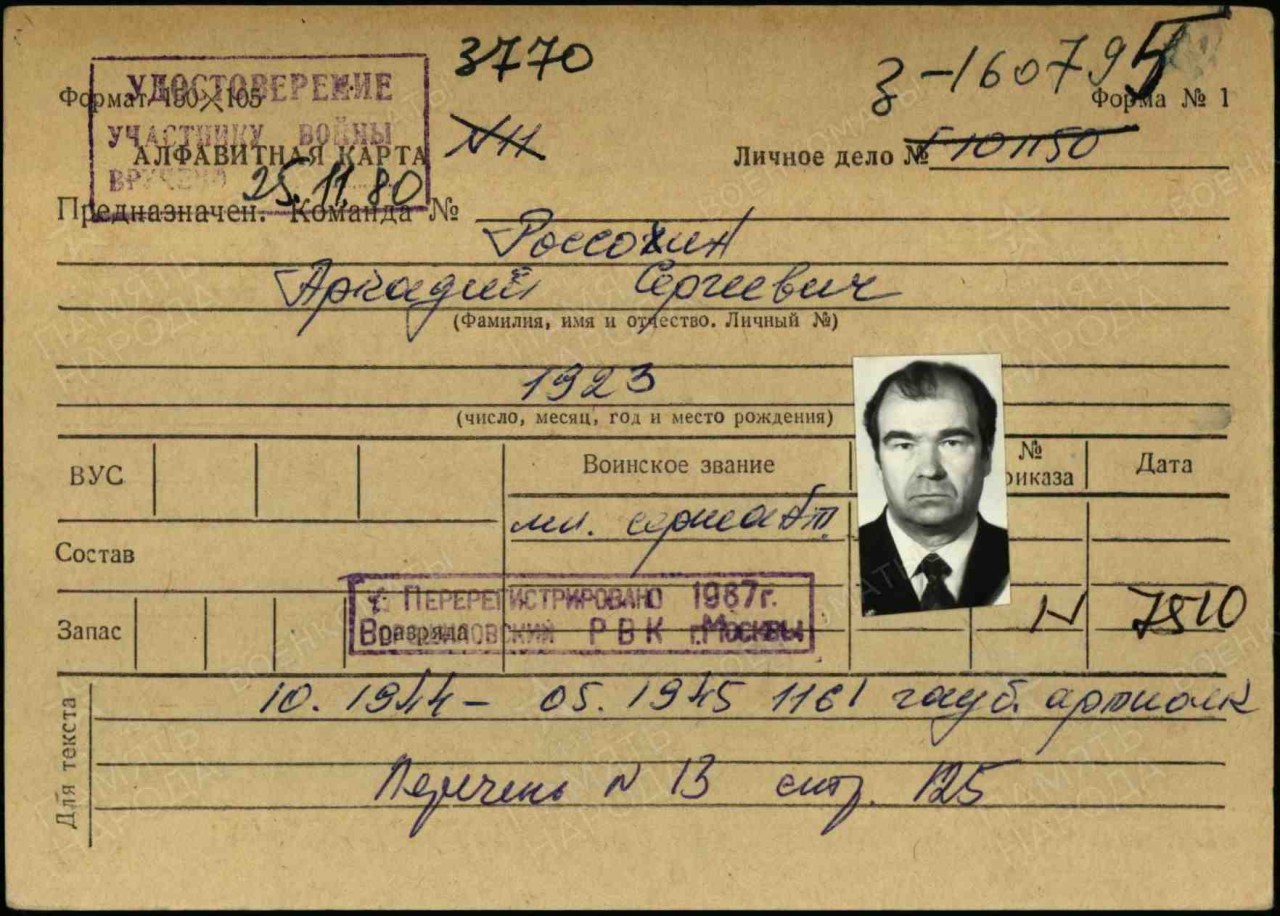 3770
З-160795
УДОСТОВЕРЕНИЕ
УЧАСТНИКУ ВОЙНЫ
ВРУЧЕНО 25.11.80
Формат 150×105
Форма № 1
АЛФАВИТНАЯ КАРТА №11
Личное дело № 101150
Предназначен. Команда №
Россохин
Аркадий Сергеевич
(Фамилия, имя и отчество. Личный №)
1923
(число, месяц, год и место рождения)
ВУС
Воинское звание
№
Дата
мл. сержант
Состав
ПЕРЕРЕГИСТРИРОВАНО 1987г.
ВОРОШИЛОВСКИЙ РВК г. МОСКВЫ
Запас
разряда
N 7510
Для текста
10. 1944 – 05. 1945 1161 гауб. артполк
Перечень N 13 стр. 125
ПАМЯТЬ НАРОДА
ВОЕНКОМАТЫ